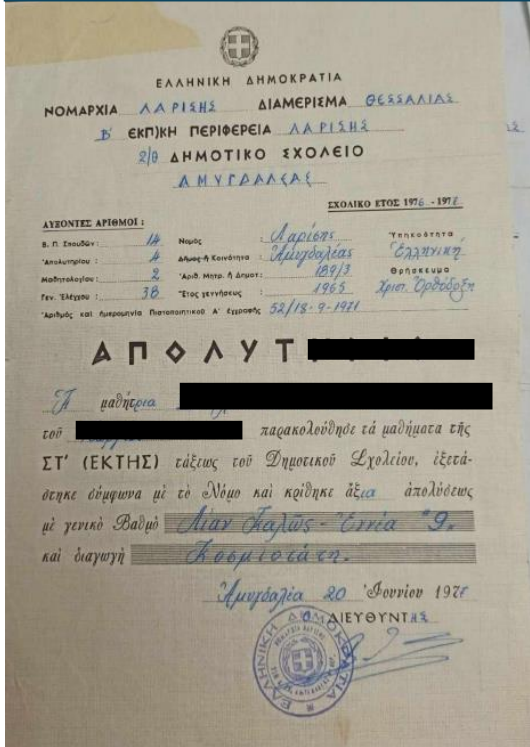 ΕΛΛΗΝΙΚΗ ΔΗΜΟΚΡΑΤΙΑ
ΝΟΜΑΡΧΙΑ ΛΑΡΙΣΗΣ ΔΙΑΜΕΡΙΣΜΑ ΘΕΣΣΑΛΙΑΣ
Β΄ ΕΚΠ)ΚΗ ΠΕΡΙΦΕΡΕΙΑ ΛΑΡΙΣΗΣ
2/θ ΔΗΜΟΤΙΚΟ ΣΧΟΛΕΙΟ
ΑΜΥΓΔΑΛΕΑΣ
ΣΧΟΛΙΚΟ ΕΤΟΣ 1976-1977
ΑΥΞΟΝΤΕΣ ΑΡΙΘΜΟΙ :
Β. Π. Σπουδῶν : 14 Νομός : Λαρίσης Ὑπηκοότητα
Ἀπολυτηρίου : 4 Δῆμος ἤ Κοινότητα : Ἀμυγδαλέας Ἑλληνική
Μαθητολογίου : 2 Ἀριθ. Μητρ. ἤ Δημοτ: 189/3 Θρήσκευμα
Γεν. Ἐλέγχου : 38 Ἔτος γεννήσεως : 1965 Χριστ. Ὀρθόδοξη
Ἀριθμός καί ἡμερομηνία Πιστοποιητικοῦ Α΄ ἐγγραφῆς 52/18-9-1971
ΑΠΟΛΥΤ
Ἡ μαθήτρια
τοῦ παρακολούθησε τά μαθήματα τῆς
ΣΤ΄ (ΕΚΤΗΣ) τάξεως τοῦ Δημοτικοῦ Σχολείου, ἐξετά-
στηκε σύμφωνα μέ τό Νόμο καί κρίθηκε ἄξια ἀπολύσεως
μέ γενικό βαθμό Λίαν Καλῶς - Ἐννέα "9"
καί διαγωγή Κοσμιοτάτη.
Ἀμυγδαλέα 20 Ἰουνίου 1977
Ο ΔΙΕΥΘΥΝΤΗΣ
ΕΛΛΗΝΙΚΗ ΔΗΜΟΚΡΑΤΙΑ